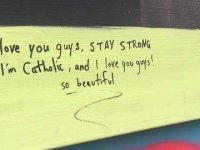 love you guys, STAY STRONG
I'm Catholic, and I love you guys!
so beautiful